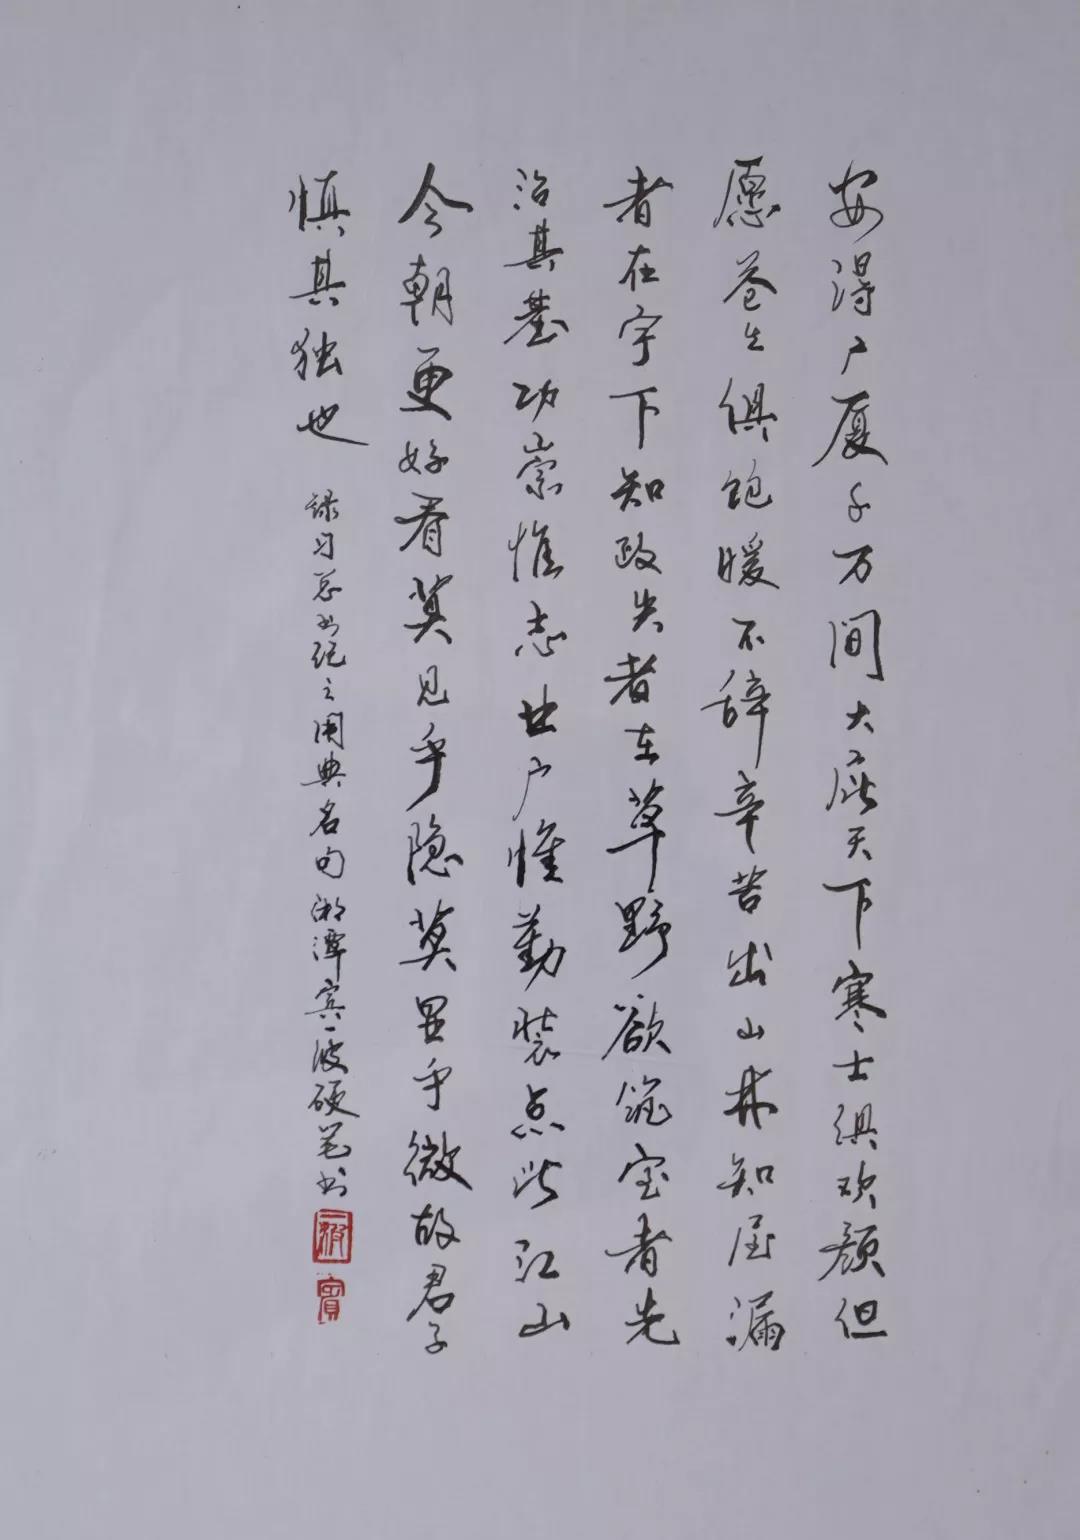 安得广厦千万间大庇天下寒士俱欢颜但
愿苍生俱饱暖不辞辛苦出山林知屋漏
者在宇下知政失者在草野欲筑室者先
治其基功崇惟志业广惟勤装点此江山
今朝更好看莫见乎隐莫显乎微故君子
慎其独也
录习总书纪之用典名句湘潭宾一波硬笔书
一波
賓